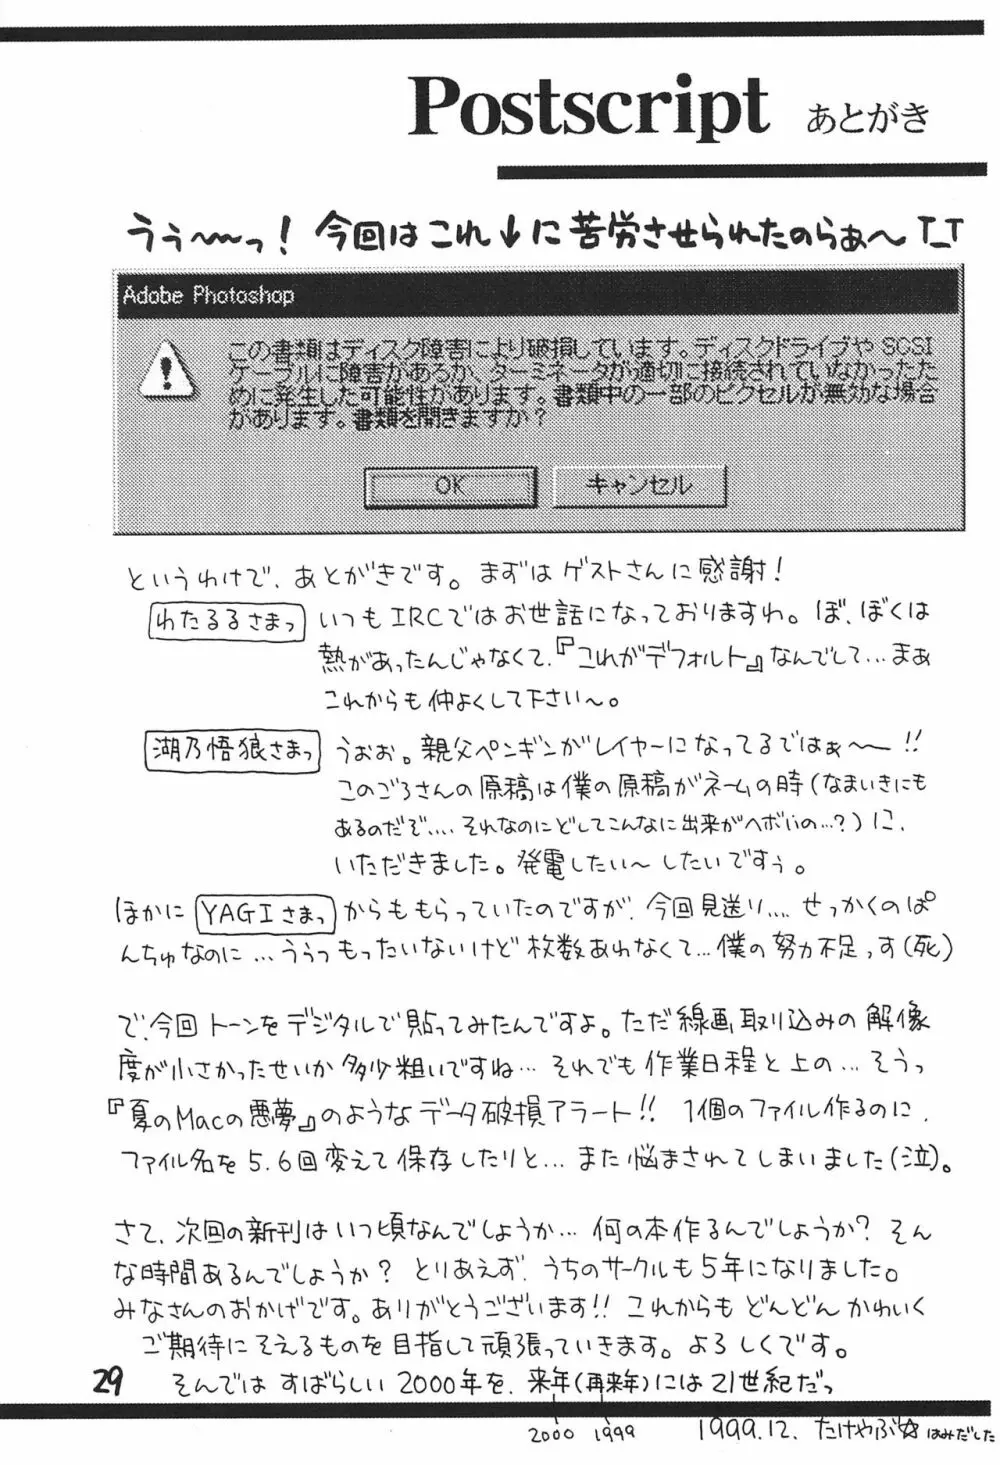 Postscript あとがき
うぅ〜〜っ! 今回はこれ↓に苦労させられたのらぁ〜 T_T
Adobe Photoshop
この書類はディスク障害により破損しています。ディスクドライブや SCSI
ケーブルに障害があるか、ターミネータが適切に接続されていなかったた
めに発生した可能性があります。書類中の一部のピクセルが無効な場合
があります。書類を開きますか?
OK キャンセル
というわけで、あとがきです。まずはゲストさんに感謝!
わたるるさまっ いつもIRCではお世話になっておりますわ。ぼ、ぼくは
熱があったんじゃなくて、『これがデフォルト』なんでして…まぁ
これからも仲よくして下さい〜。
湖乃悟狼さまっ うぉぉ。親父ペンギンがレイヤーになってるではぁ〜!!
このごろさんの原稿は僕の原稿がネームの時(なまいきにも
あるのだぞ.... それなのにどしてこんなに出来がヘボいの…?)に、
いただきました。発電したい〜したいですぅ。
ほかに YAGIさまっ からももらっていたのですが、今回見送り.... せっかくのぱ
んちゅなのに…ううっもったいないけど枚数あわなくて…僕の努力不足っす(死)
で、今回トーンをデジタルで貼ってみたんですよ。ただ線画取り込みの解像
度が小さかったせいか多少粗いですね… それでも作業日程と上の… そうっ
『夏のMacの悪夢』のようなデータ破損アラート!! 1個のファイル作るのに、
ファイル名を5.6回変えて保存したりと…また悩まされてしまいました(泣)。
さて、次回の新刊はいつ頃なんでしょうか… 何の本作るんでしょうか? そん
な時間あるんでしょうか? とりあえず、うちのサークルも5年になりました。
みなさんのおかげです。ありがとうございます!! これからもどんどんかわいく
ご期待にそえるものを目指して頑張っていきます。よろしくです。
29 そんではすばらしい2000年を、来年(再来年)には21世紀だっ
2000 1999 1999.12. たけやぶ☆ はみだした